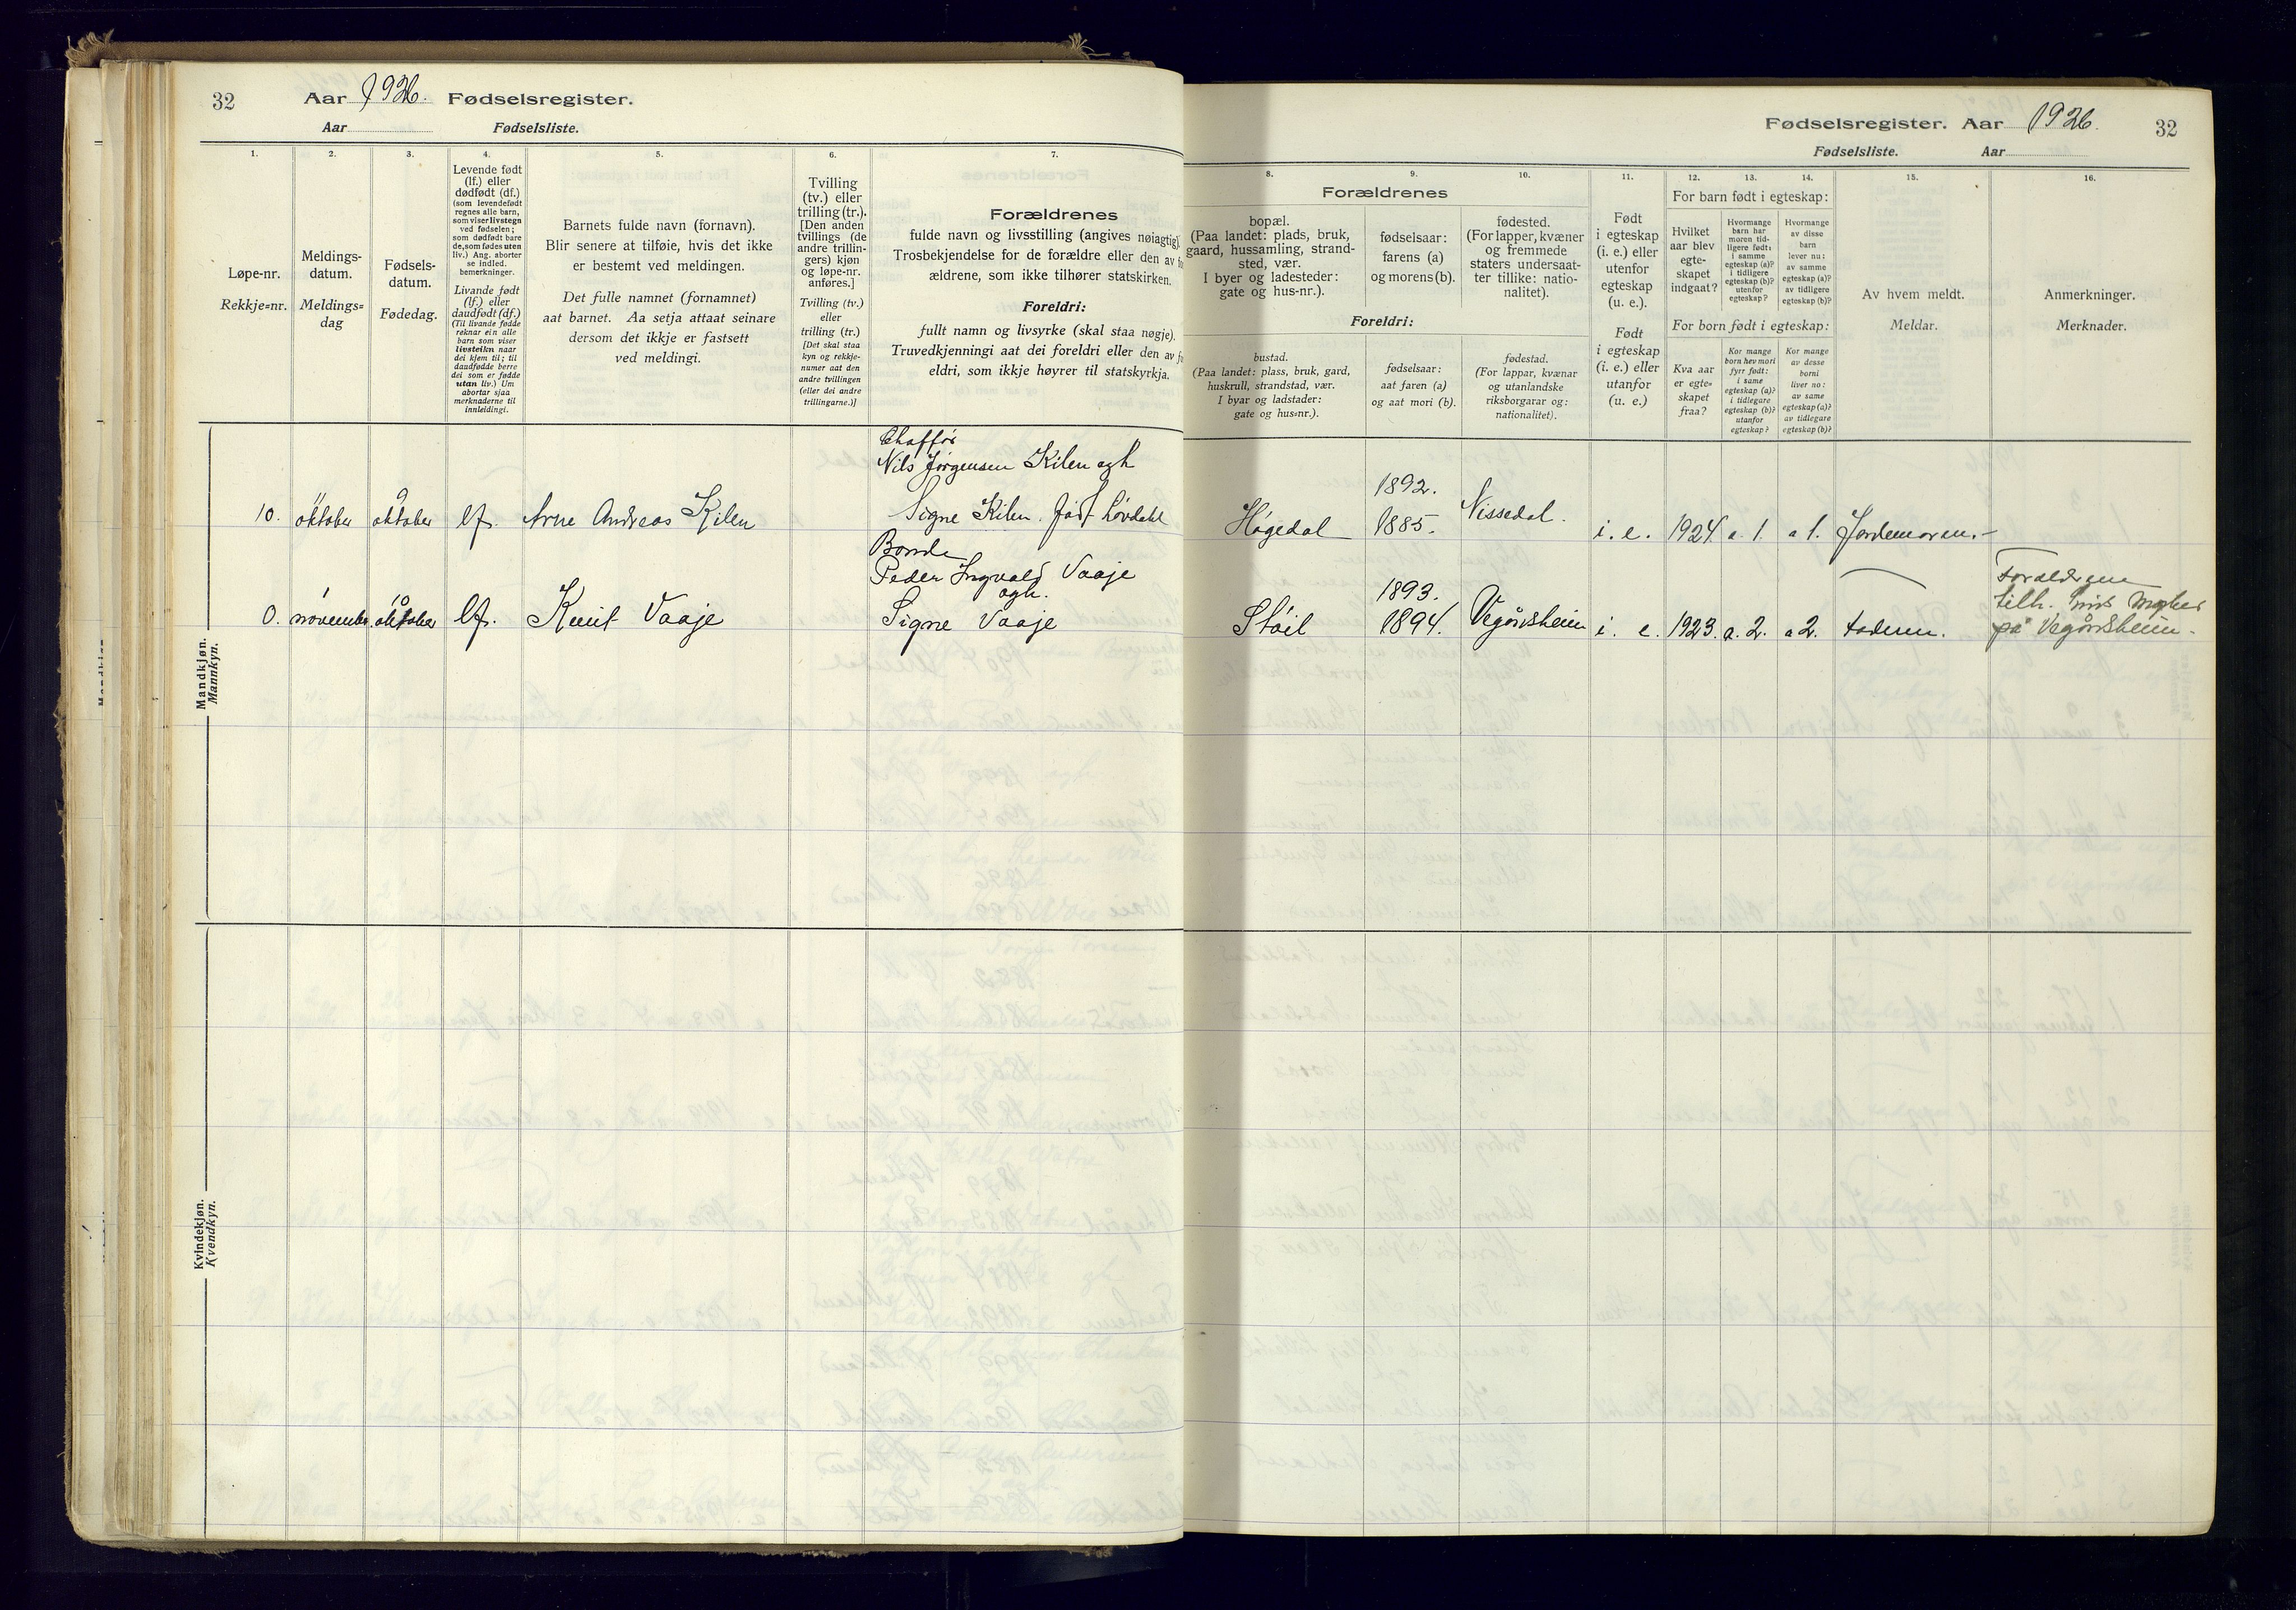 32 Aar 1926. Fødselsregister.
Aar Fødselsliste.
1. 2. 3. 4. 5. 6. 7.
Løpe-nr.
Rekkje=nr.
Meldings-
datum.
Meldings=
dag
Fødsels-
datum.
Fødedag.
Levende født
(lf.) eller
dødfødt (df.)
(som levendefødt
regnes alle barn,
som viser livstegn
ved fødselen;
som dødfødt bare
de, som fødes uten
liv.) Ang. aborter
se indled.
bemerkninger.
Livande født
(lf.) eller
daudfødt (df.)
(Til livande fødde
reknar ein alle
barn som viser
livsteikn naar
dei kjem til; til
daudfødde berre
dei som er fødde
utan liv.) Um
abortar sjaa
merknaderne til
innleidingi.
Barnets fulde navn (fornavn).
Blir senere at tilføie, hvis det ikke
er bestemt ved meldingen.
Det fulle namnet (fornamnet)
aat barnet. Aa setja attaat seinare
dersom det ikkje er fastsett
ved meldingi.
Tvilling
(tv.) eller
trilling (tr.).
[Den anden
tvillings (de
andre trillin-
gers) kjøn
og løpe-nr.
anføres.]
Tvilling (tv.)
eller
trilling (tr.)
[Det skal staa
kyn og rekkje-
numer aat den
andre tvillingen
(eller dei andre
trillingarne.)]
Forældrenes
fulde navn og livsstilling (angives nøiagtig).
Trosbekjendelse for de forældre eller den av
ældrene, som ikke tilhører statskirken.
Foreldri:
fullt namn og livsyrke (skal staa nøgje).
Truvedkjenningi aat dei foreldri eller den av
eldri, som ikkje høyrer til statskyrkja.
Mandkjøn.
Mannkyn.
Chaffør
Nils Jørgensen Kilen ogh
10. 11 oktober 9 oktober lf. Arne Andreas Kilen Signe Kilen. født Løvdahl
Bonde
Peder Ingvald Vaaje
ogh.
0. 1 november. 10 oktober lf. Knut Vaaje Signe Vaaje
Kvindekjøn.
Kvendkyn.
Fødselsregister. Aar 1926. 32
Fødselsliste. Aar
8. 9. 10. 11. 12. 13. 14. 15. 16.
Forældrenes
bopæl.
(Paa landet: plads, bruk,
gaard, hussamling, strand-
sted, vær.
I byer og ladesteder:
gate og hus-nr.).
fødselsaar:
farens (a)
og morens (b).
fødested.
(For lapper, kvæner
og fremmede
staters undersaat-
ter tillike: natio-
nalitet).
Foreldri:
bustad.
(Paa landet: plass, bruk, gard,
huskrull, strandstad, vær.
I byar og ladstader:
gate og hus=nr.).
fødselsaar:
aat faren (a)
og aat mori (b).
fødestad.
(For lappar, kvænar
og utanlandske
riksborgarar og:
nationalitet).
Født
i egteskap
(i. e.) eller
utenfor
egteskap
(u. e.).
Født
i egteskap
(i. e.) eller
utanfor
(u. e.)
For barn født i egteskap:
Hvilket
aar blev
egte-
skapet
indgaat?
Hvormange
barn har
moren tid-
ligere født:
i samme
egteskap (a)?
i tidligere
egteskap (b)?
utenfor
egteskap?
Hvormange
av disse
barn
lever nu:
av samme
egteskap (a)?
av tidligere
egteskap (b)?
For born født i egteskap:
Kva aar
er egte=
skapet
fraa?
Kor mange
born hev mori
fyrr født:
i same
egteskap (a)?
i tidlegare
egteskap (b)?
utanfor
egteskap?
Kor mange
av desse
borni
liver no:
av same
egteskap (a)?
av tidlegare
egteskap (b)?
Av hvem meldt.
Meldar.
Anmerkninger.
Merknader.
1892.
Høgedal 1885. Nissedal. i. e. 1924. a. 1. a 1. Jordemoren.
1893.
Støil 1894. Vegårdsheim i. e. 1923. a. 2. a 2. faderen.
Forældrene
tilh.
på Vegårdsheim.